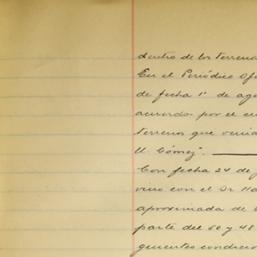 dentro de los terrenos
En el Periódico Ofi
de fecha 1º de ago
acuerdo por el cu
terrenos que venía
U. Gómez".
Con fecha 24 de j
vino con el Sr Ha
aproximada de
parte del 60 y 48
guientes condicio